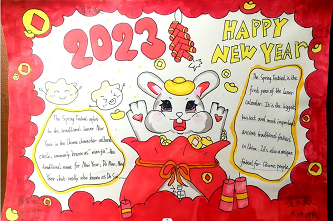 2023
HAPPY
NEW YEAR
The Spring Festival refers
to the traditional Lunar New
Year in the Chinese character cultural
circle, commonly known as
traditional names for New Year,
Year, but orally also known as
The Spring Festival is the
first year of the lunar
calendar. It is the biggest
busiest and most important
ancient traditional festival
in China. It's also a unique
festival for Chinese people.